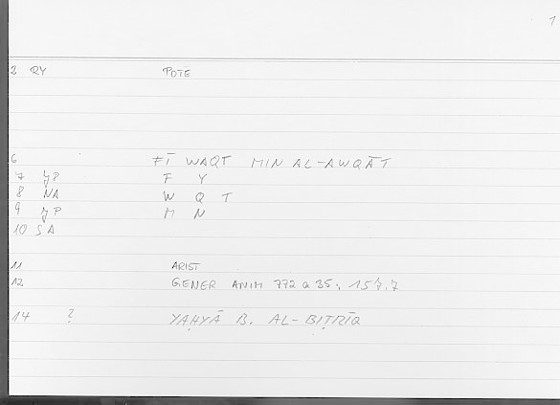 1
2 QY POTE
6 FĪ WAQT MIN AL-AWQĀT
7 YP F Y
8 NA W Q T
9 YP M N
10 SA
11 ARIST
12 GENER ANIM 772 a 35; 157,7
14 ? YAḤYĀ B. AL-BIṬRĪQ